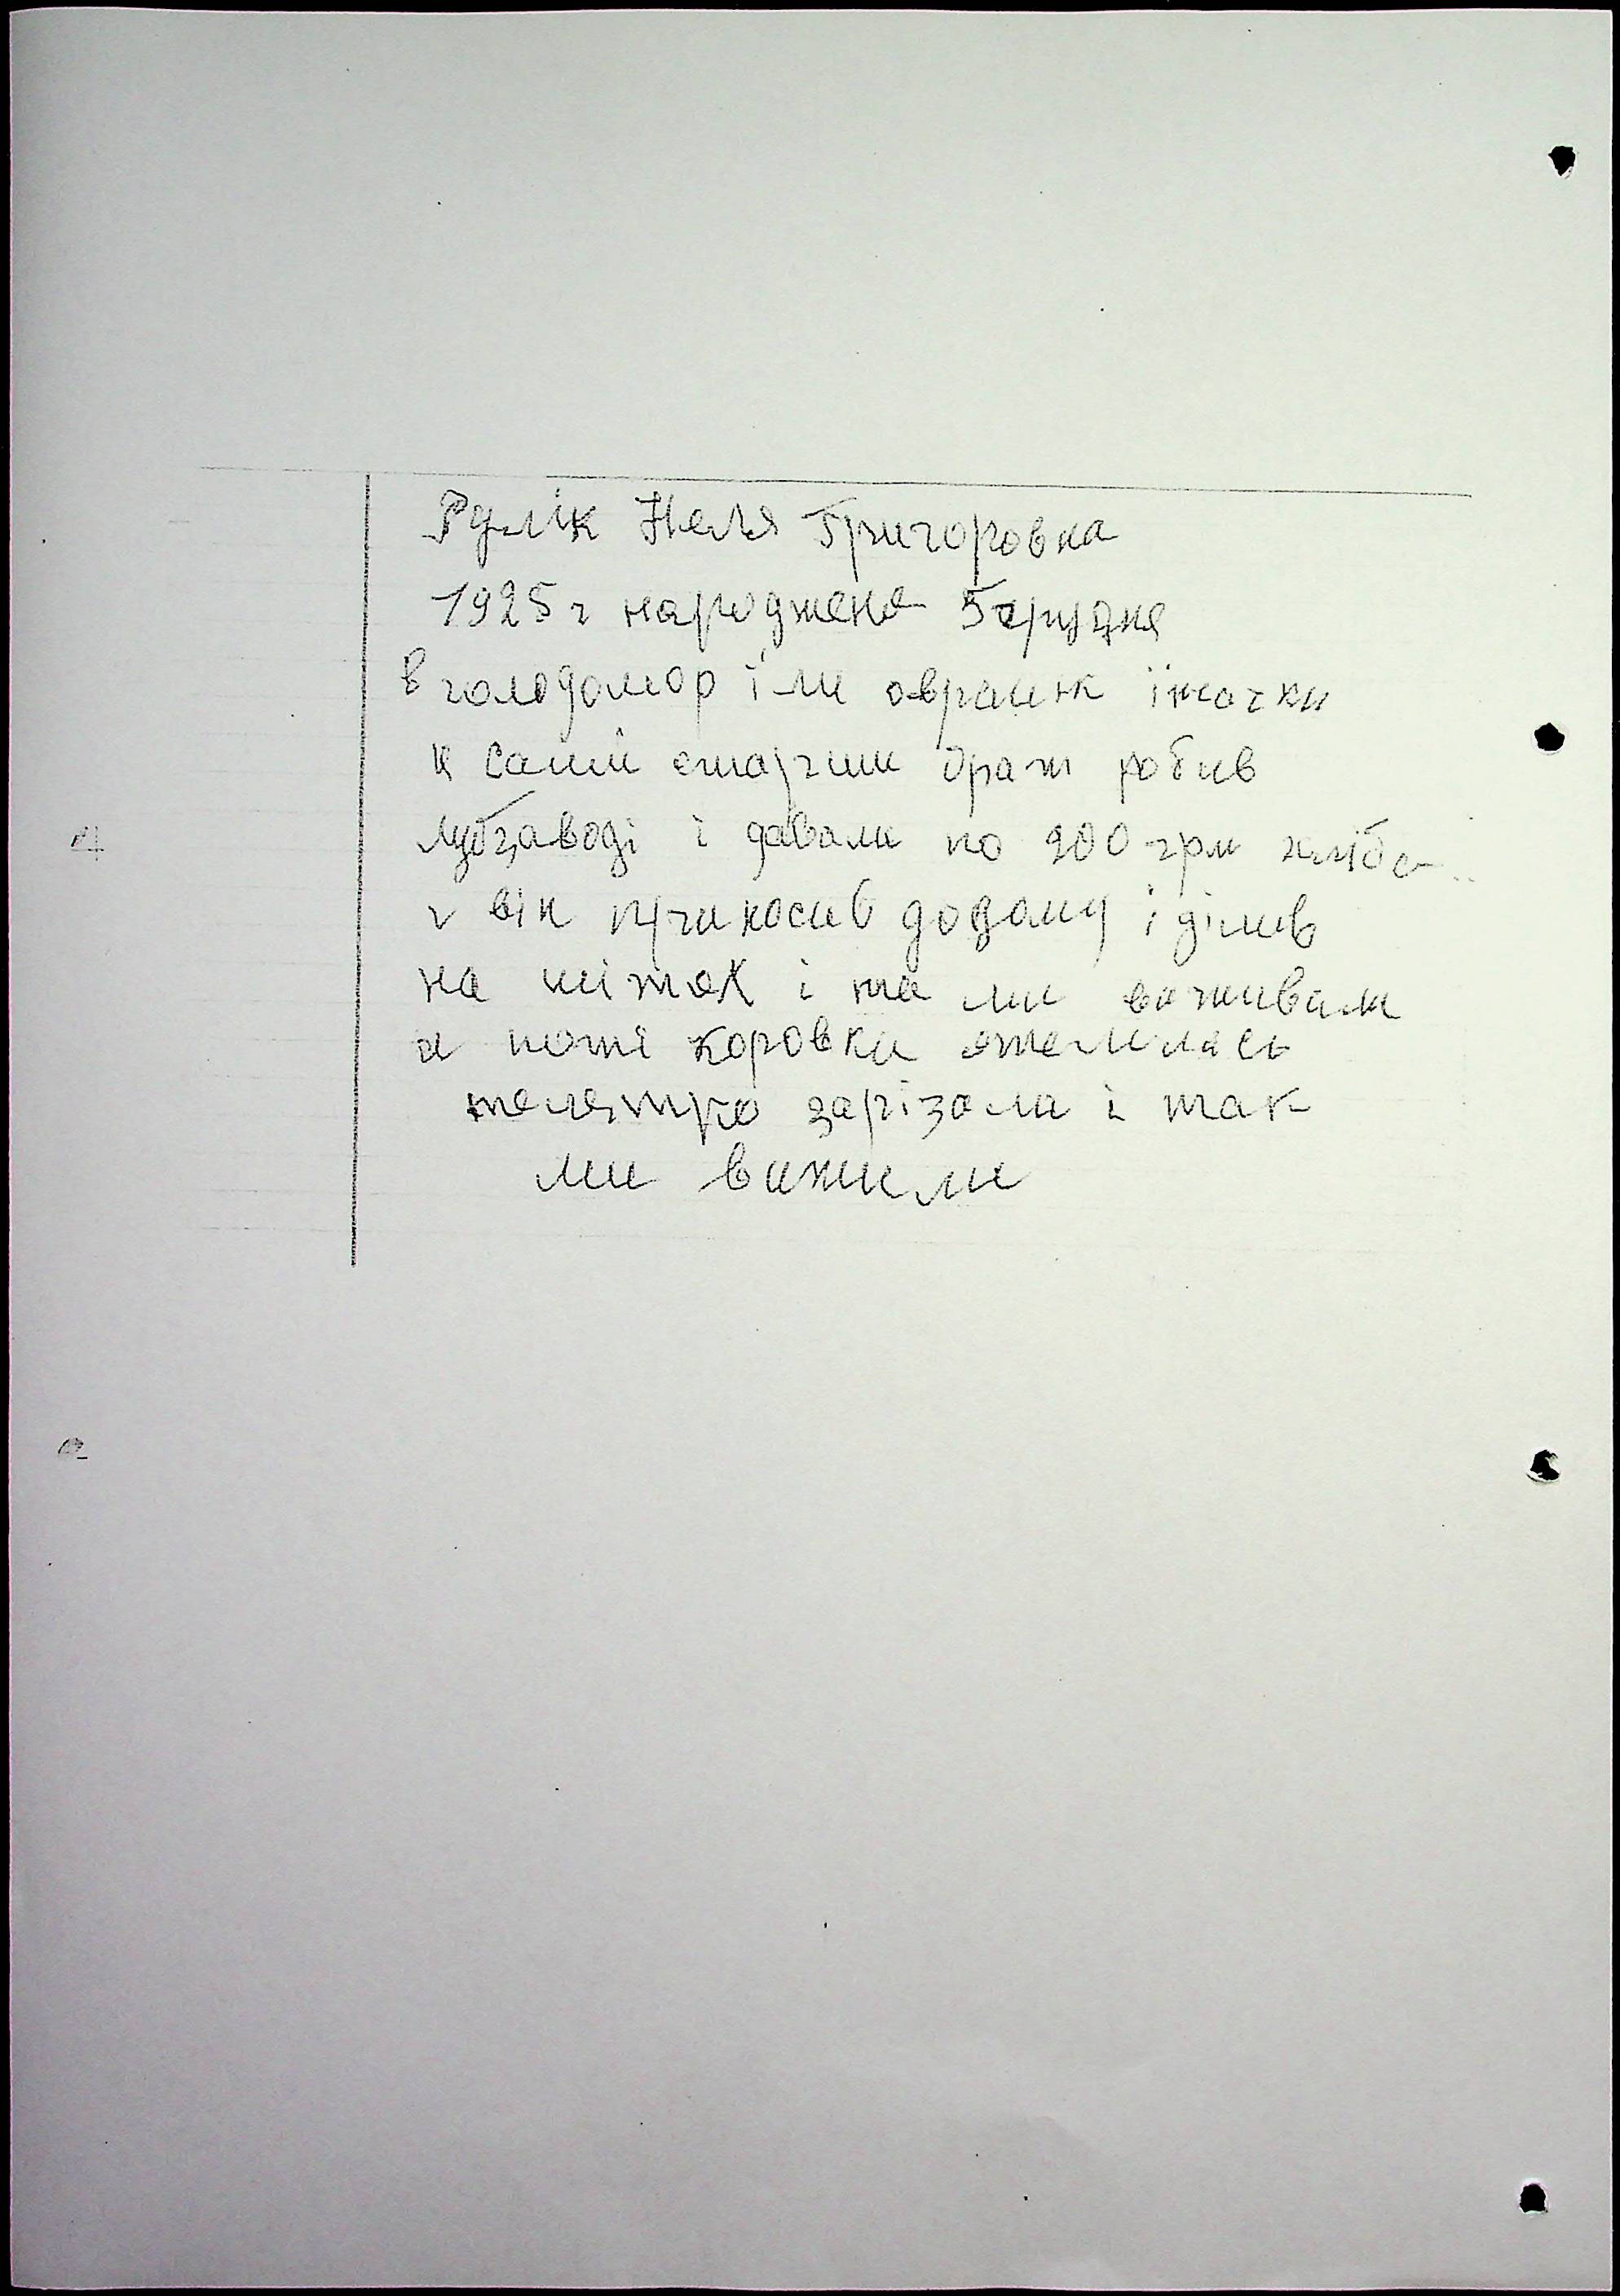 Рулік Неля Григоровка
1925 г народжена 5 грудня
в голодомор їли овраник їжачки
и самий старший брат робив
лубзаводі і давали по 200 грм хліба
і він приносив додому і ділив
на шітох і та ми виживали
а поті коровка отелилась
телятко зарізали і так
ми вижили